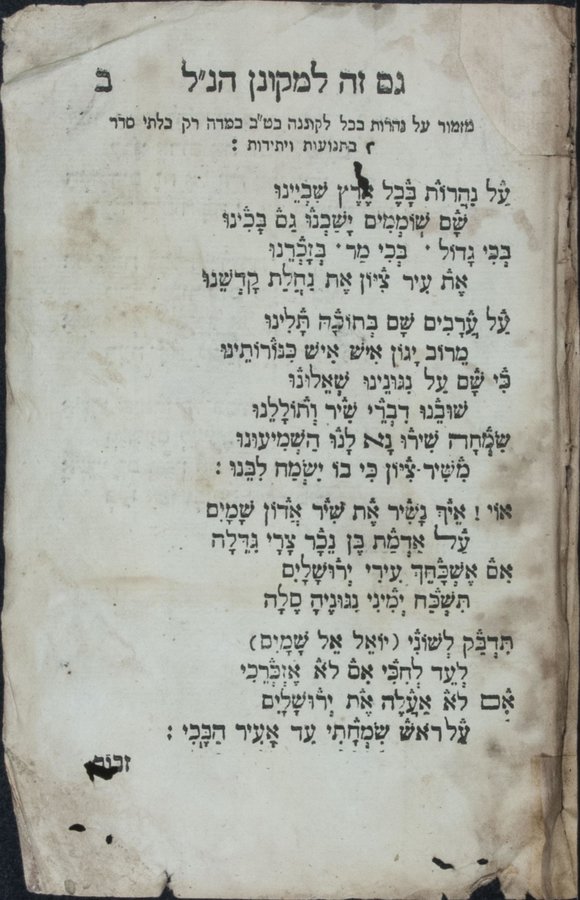 גם זה למקונן הנ״ל ב
מזמור על נהרות בבל לקתנה בט״ב במדה רק בלתי סדר
בתנועות ויתידות :
עַל נַהֲרוֹת בָּבֶל אֶרֶץ שִׁבְיֵינוּ
שָׁם שׁוֹמְמִים יָשַׁבְנוּ גַם בָּכִינוּ
בְּכִי גָדוֹל · בְּכִי מַר · בְּזָכְרֵנוּ
אֶת עִיר צִיּוֹן אֶת נַחֲלַת קָדְשֵׁנוּ
עַל עֲרָבִים שָׁם בְּתוֹכָהּ תָּלִינוּ
מֵרוֹב יָגוֹן אִישׁ אִישׁ כִּנּוֹרוֹתֵינוּ
כִּי שָׁם עַל נִגּוּנֵינוּ שְׁאֵלוּנוּ
שׁוֹבֵנוּ דִבְרֵי שִׁיר וְתוֹלָלֵנוּ
שִׂמְחָה שִׁירוּ נָא לָנוּ הַשְׁמִיעוּנוּ
מִשִּׁיר צִיּוֹן כִּי בוֹ יִשְׂמַח לִבֵּנוּ :
אוֹי ! אֵיךְ נָשִׁיר אֶת שִׁיר אֲדוֹן שָׁמַיִם
עַל אַדְמַת בֶּן נֵכָר צָרָי גִּדֵּלָה
אִם אֶשְׁכָּחֵךְ עִירִי יְרוּשָׁלַיִם
תִּשְׁכַּח יְמִינִי נִגּוּנֶיהָ סֶלָה
תִּדְבַּק לְשׁוֹנִי (יוֹאֵל אֵל שָׁמַיִם)
לְעַד לְחִכִּי אִם לֹא אֶזְכְּרֵכִי
אִם לֹא אַעֲלֶה אֶת יְרוּשָׁלַיִם
עַל רֹאשׁ שִׂמְחָתִי עַד אָעִיר הַבֶּכִי :